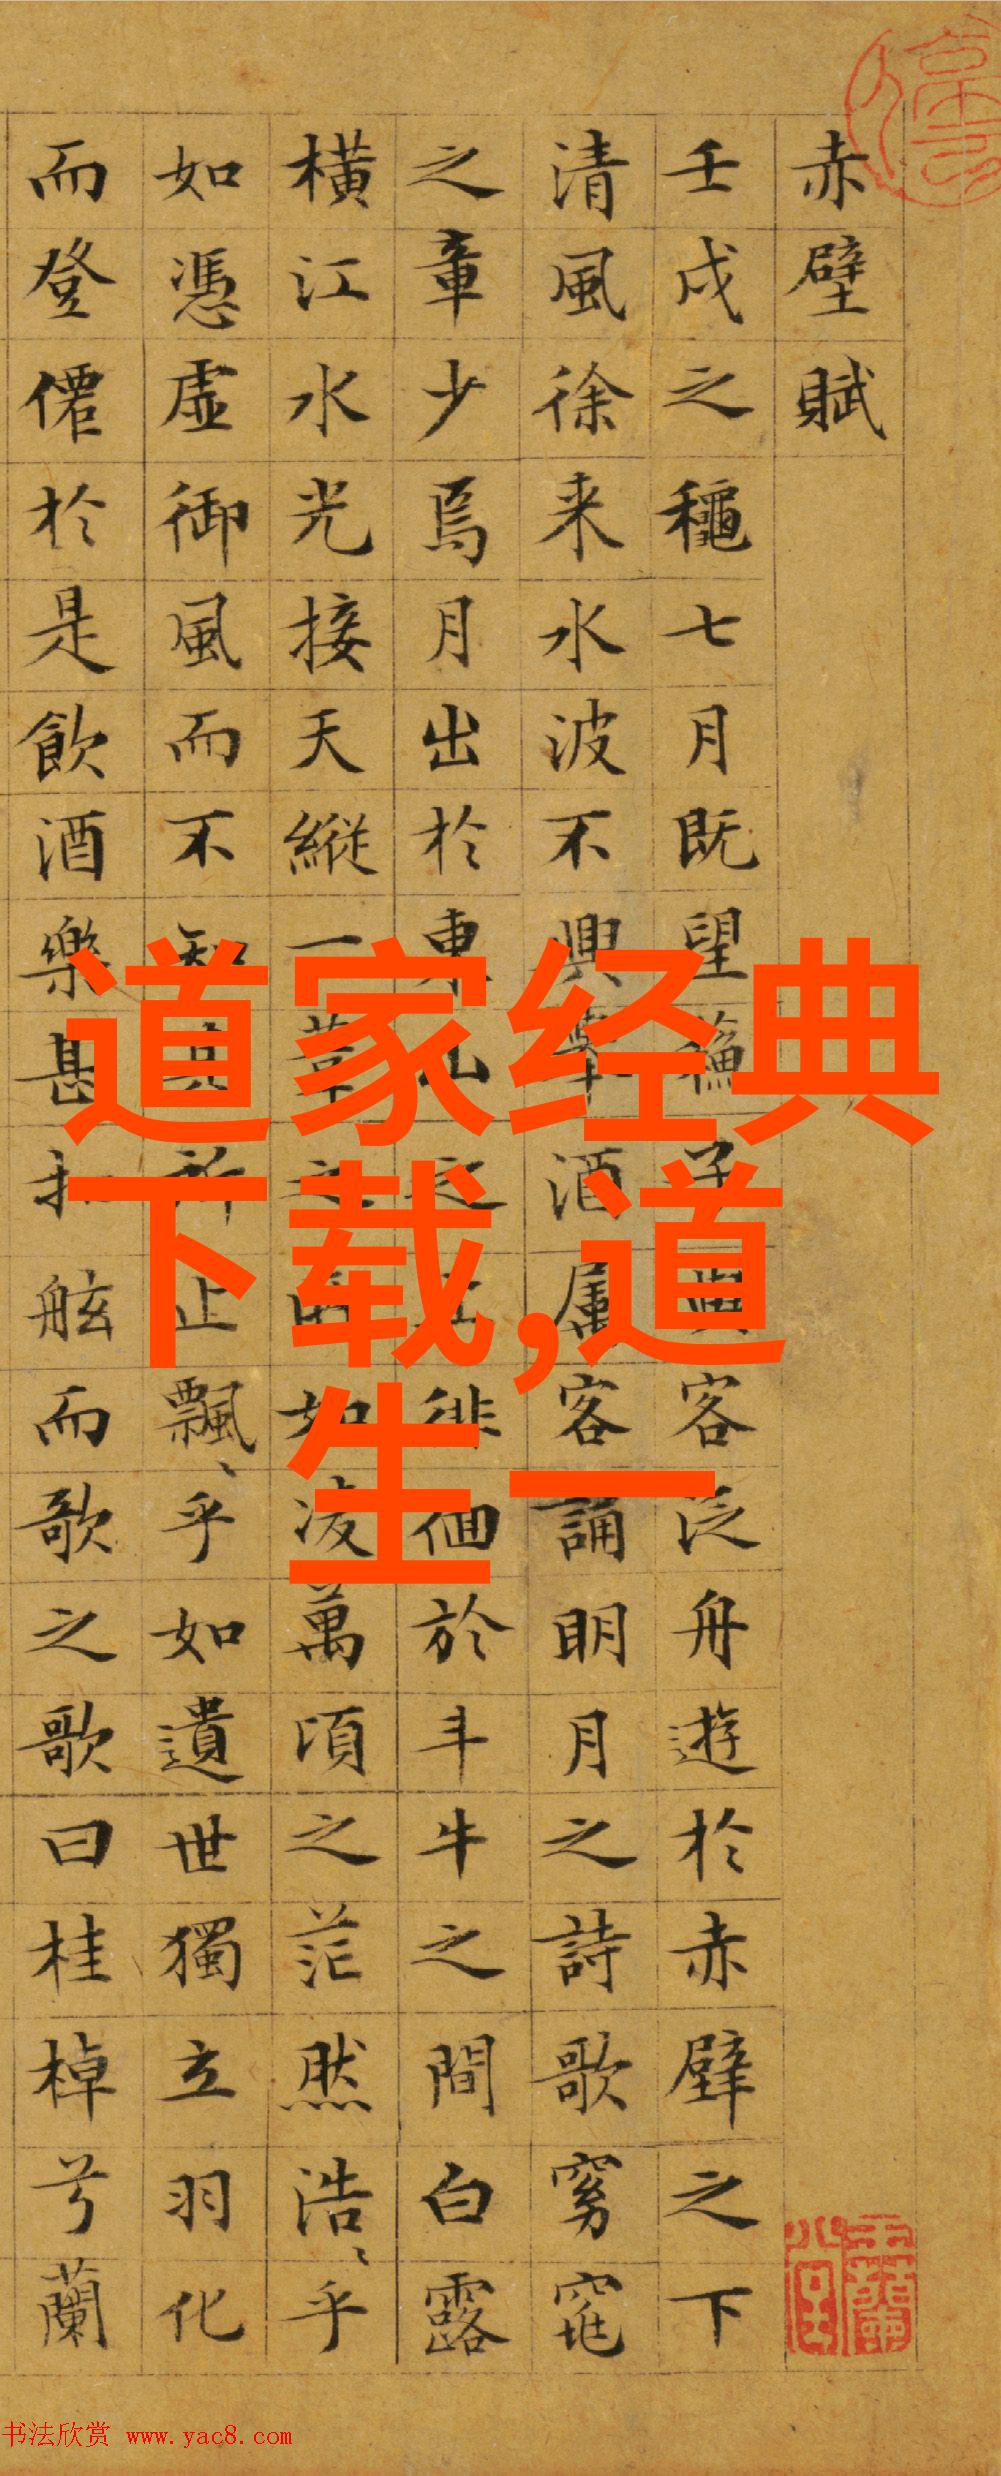 赤壁賦
壬戌之穐七月既望蘓子與客泛舟遊於赤壁之下
清風徐来水波不興舉酒属客誦明月之詩歌窈窕
之章少焉月出於東山之上徘徊於斗牛之間白露
橫江水光接天縱一葦之所如凌萬頃之茫然浩、乎
如憑虛御風而不知其所止飄、乎如遺世獨立羽化
而登僊於是飲酒樂甚扣舷而歌之歌曰桂棹兮蘭
道家经典
下载,道
生一
书法欣赏 www.yac8.com